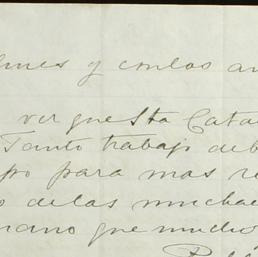 y con los
ver questa Cata
Tanto trabajo deb
po para mas re
o delas muchac
mano que mucho